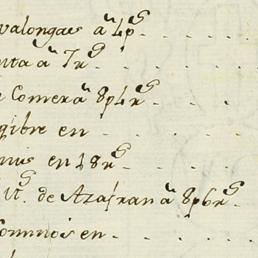 valongas aͣ 4pˢ
nta aͣ 7rˢ
Comer aͣ 8p4rˢ
gibre en
mis en 18rˢ
de Azafran aͣ 8p6rˢ
Cominos en